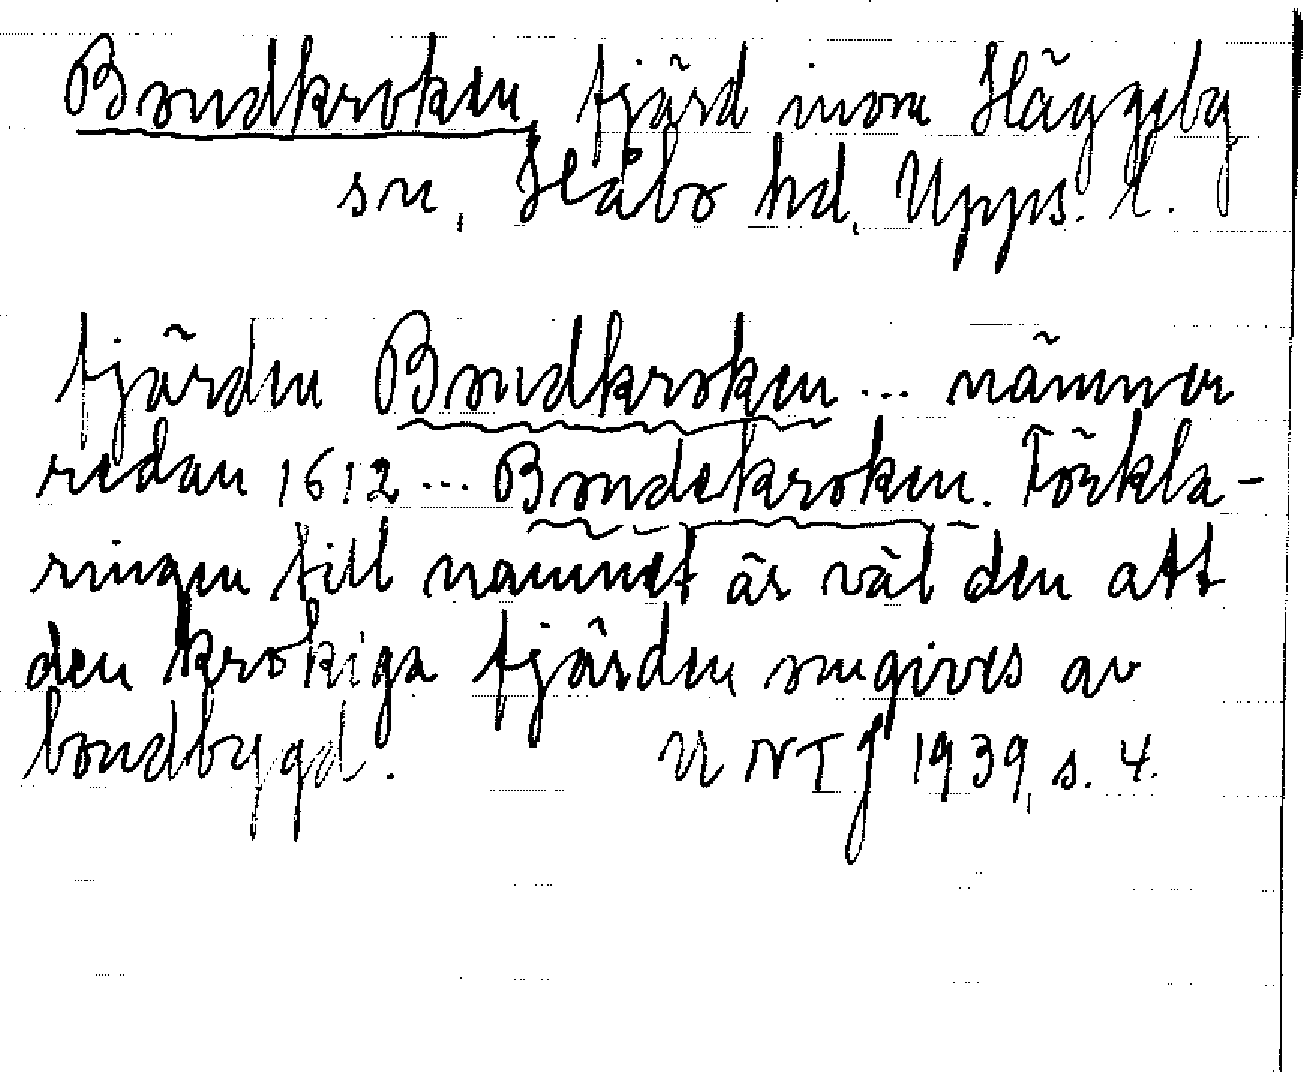 Bondkroken, fjärd inom Häggeby
sn, Håbo hd, Upps. l.
fjärden Bondkroken ... nämnes
redan 1612 ... Bondekroken. Förkla-
ringen till namnet är väl den att
den krokiga fjärden omgives av
bondbygd. UNTJ 1939, s. 4.